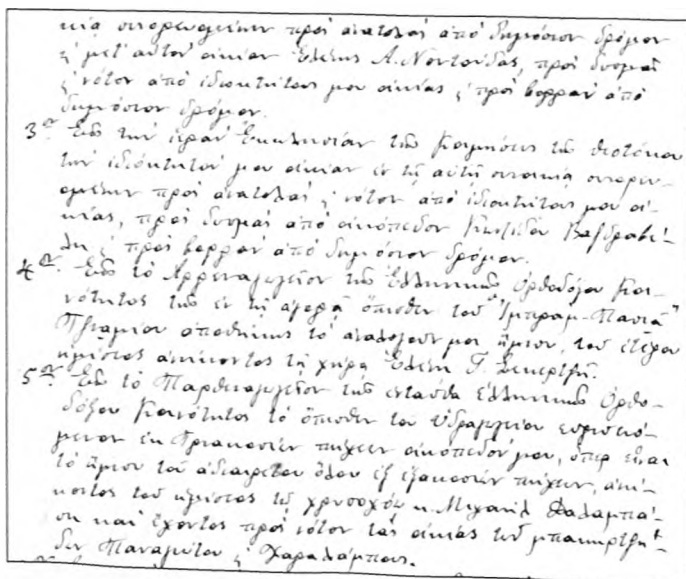 κία συνορευομένην πρὸς ἀνατολὰς ἀπὸ δημόσιον δρόμον
ς μετ' αὐτὸν οἰκίαν Ἑλένης Α. πρὸς δυσμὰς
ς νότον ἀπὸ ἰδιοκτήτους μου οἰκίας ς πρὸς βορρᾶν ἀπὸ
δημόσιον δρόμον.
3ον Εἰς τὴν ἱερὰν Ἐκκλησίαν τῆς Κοιμήσεως τῆς Θεοτόκου
τὴν ἰδιόκτητόν μου οἰκίαν ἐν τῇ αὐτῇ συνοικίᾳ συνορευ-
ομένην πρὸς ἀνατολὰς ς νότον ἀπὸ ἰδιοκτήτους μου οἰ-
κίας, πρὸς δυσμὰς ἀπὸ οἰκόπεδον
ς πρὸς βορρᾶν ἀπὸ δημόσιον δρόμον.
4ον Εἰς τὸ Ἀρρεναγωγεῖον τῆς Ἑλληνικῆς Ὀρθοδόξου Κοι-
νότητος τῆς ἐν τῇ ἀγορᾷ ὄπισθεν τοῦ "Ἰμπραμ-Πασιᾶ"
Τζαμίου ἀποθήκης τὸ ἀναλογοῦν μοι ἥμισυ, τοῦ ἑτέρου
ἡμίσεος ἀνήκοντος τῇ χήρᾳ Ἑλένῃ Γ.
5ον Εἰς τὸ Παρθεναγωγεῖον τῆς ἐνταῦθα Ἑλληνικῆς Ὀρθο-
δόξου Κοινότητος τὸ ὄπισθεν τοῦ Ὑδραγωγείου εὑρισκό-
μενον ἐκ τριακοσίων πήχεων οἰκόπεδόν μου, ὅπερ εἶναι
τὸ ἥμισυ τοῦ ἀδιαιρέτου ὅλου ἐξ ἑξακοσίων πήχεων, ἀνή-
κοντος τοῦ ἡμίσεος τῷ χρυσοχόῳ κ. Μιχαὴλ
καὶ ἔχοντος πρὸς νότον τὰς οἰκίας τῶν μπακιρτζή-
δων Παναγιώτου ς Χαραλάμπους.